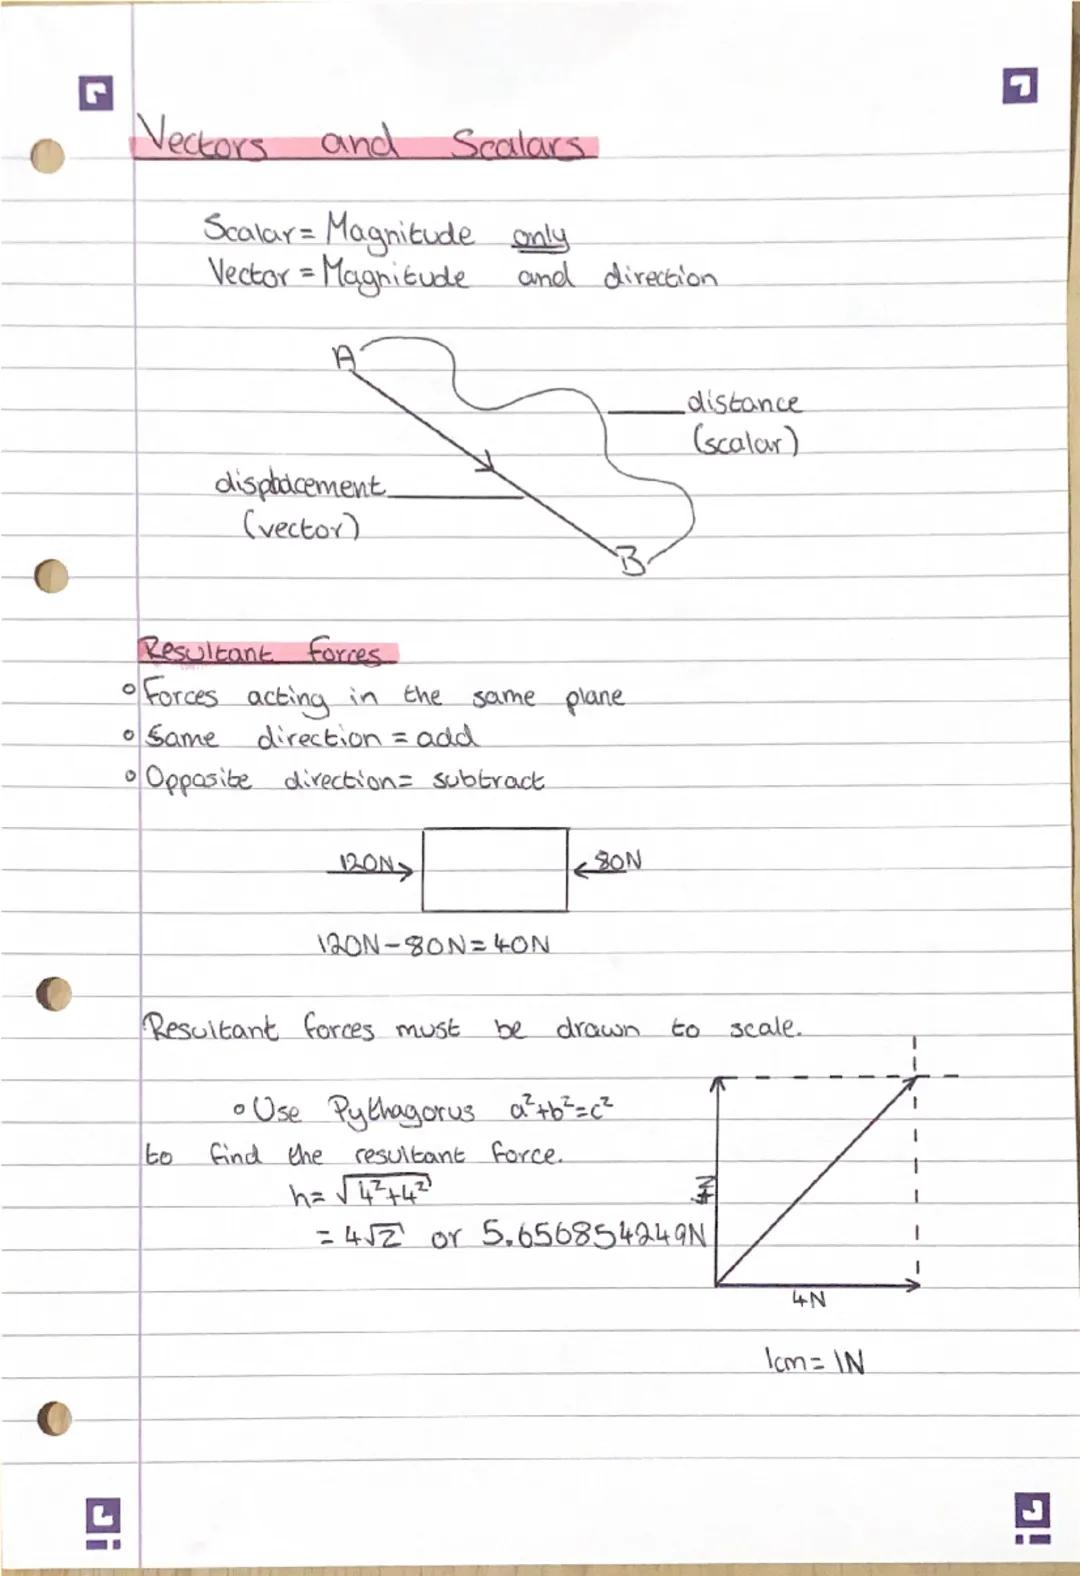 Vectors and Scalars
Scalar = Magnitude only
Vector = Magnitude and direction
A
distance
(scalar)
displacement
(vector)
B
Resultant forces
Forces acting in the same plane
Same direction = add
Opposite direction = subtract
120N
80N
120N - 80N = 40N
Resultant forces must be drawn to scale.
Use Pythagorus a²+b²=c²
to find the resultant force.
h = √4²+4²
= 4√2 or 5.656854249N
4N
4N
1cm = 1N